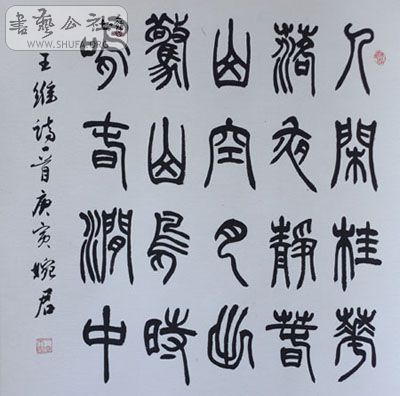 人閑桂華
落夜靜春
山空月出
驚山鳥時
鳴春澗中
王維詩一首庚寅婉君
書藝公社
WWW.SHUFA.ORG